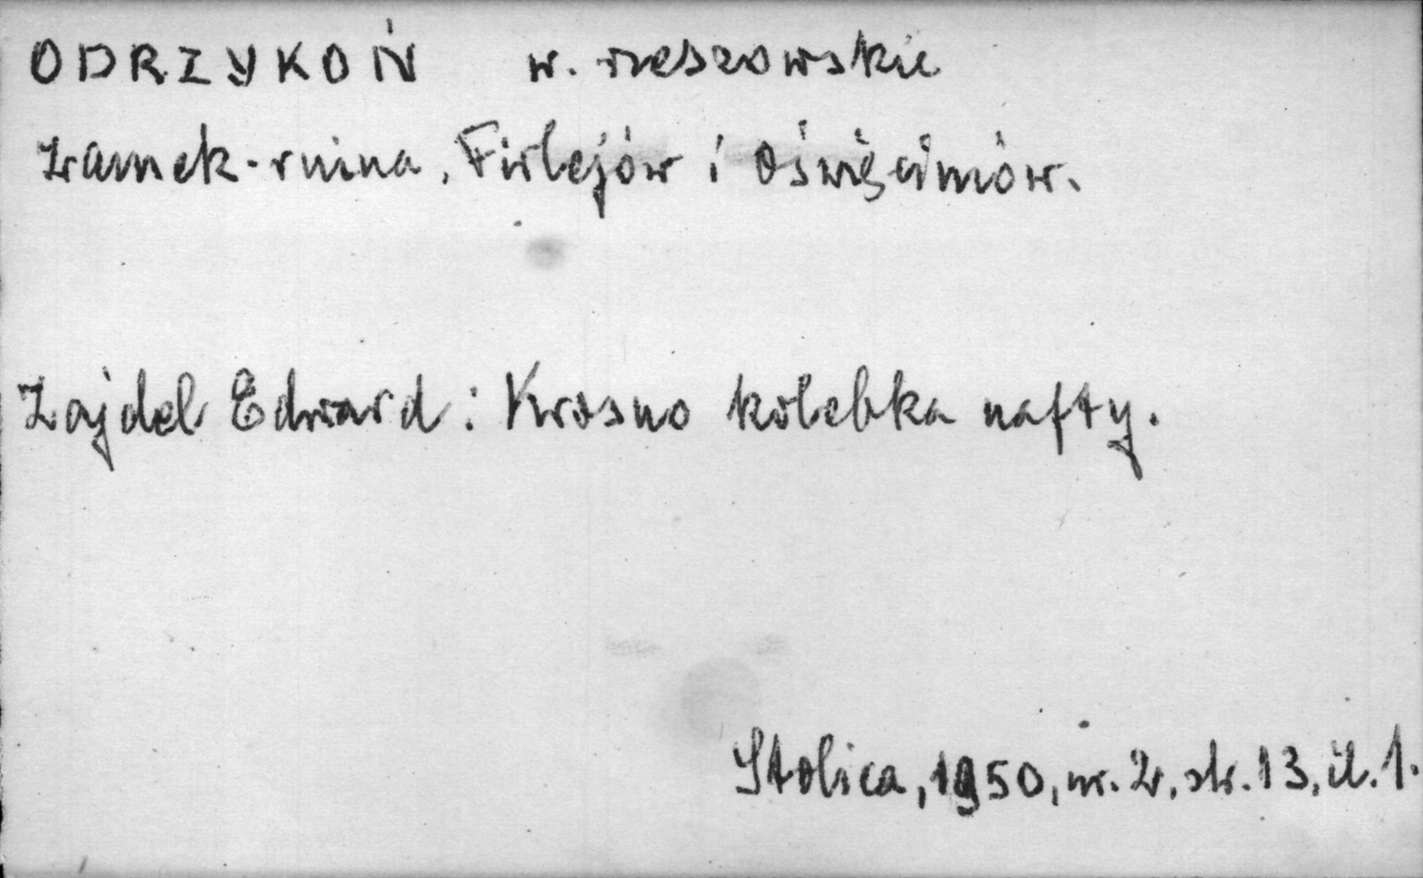 ODRZYKOŃ w. rzeszowskie
Zamek-ruina, Firlejów i Oświęcimów.
Zajdel Edward: Krosno kolebka nafty.
Stolica, 1950, nr. 2, str. 13, il. 1.